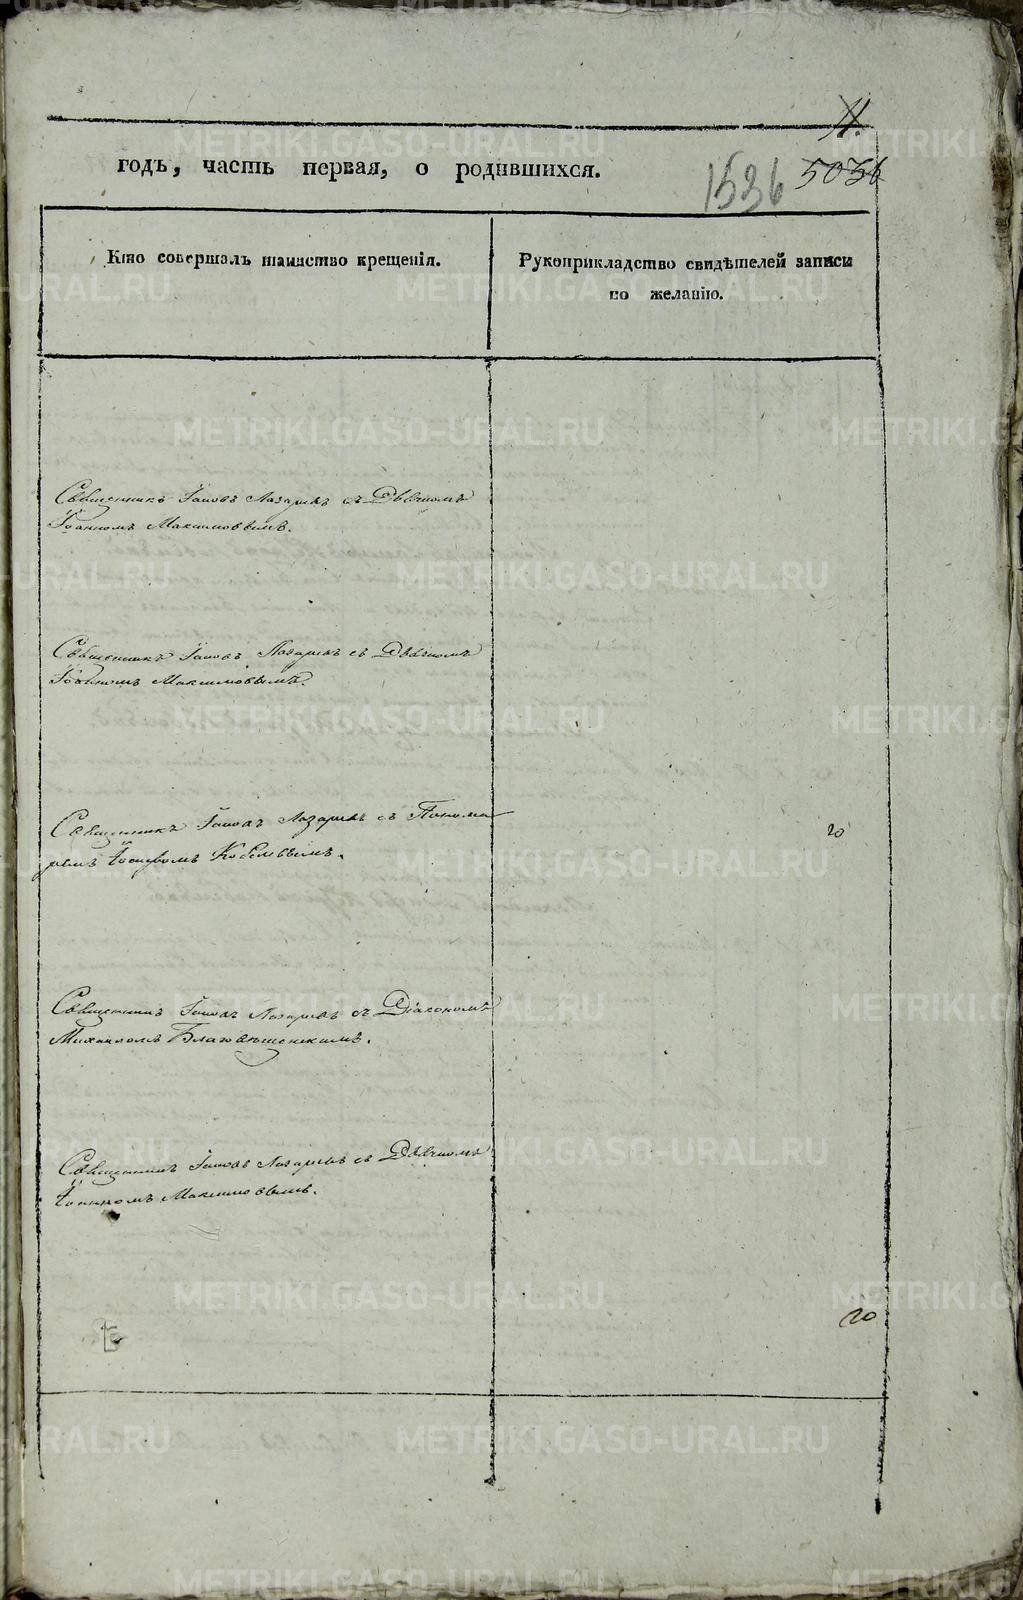 11.
годъ, часть первая, о родившихся.
1536 5036
Кто совершалъ таинство крещенія.
Рукоприкладство свидѣтелей записи
по желанію.
Священникъ Іаковъ Лазаревъ съ Дьячкомъ
Іоанномъ Максимовымъ.
Священникъ Іаковъ Лазаревъ съ Дьячкомъ
Іоанномъ Максимовымъ.
Священникъ Іаковъ Лазаревъ съ Понома-
ремъ Іосифомъ
20
Священникъ Іаковъ Лазаревъ съ Діакономъ
Михаиломъ Благовѣщенскимъ.
Священникъ Іаковъ Лазаревъ съ Дьячкомъ
Іоанномъ Максимовымъ.
20
METRIKI.GASO-URAL.RU